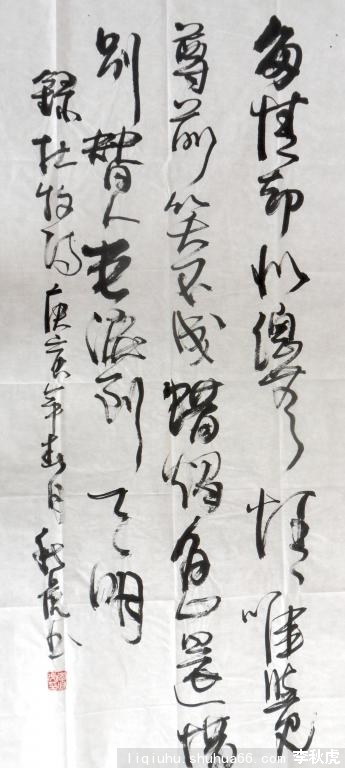 多情却似總無情唯覺
尊前笑不成蠟燭有心還惜
别替人垂淚到天明
錄杜牧詩庚寅年春月秋虎書
liqiuhu.shuhua66.com 李秋虎